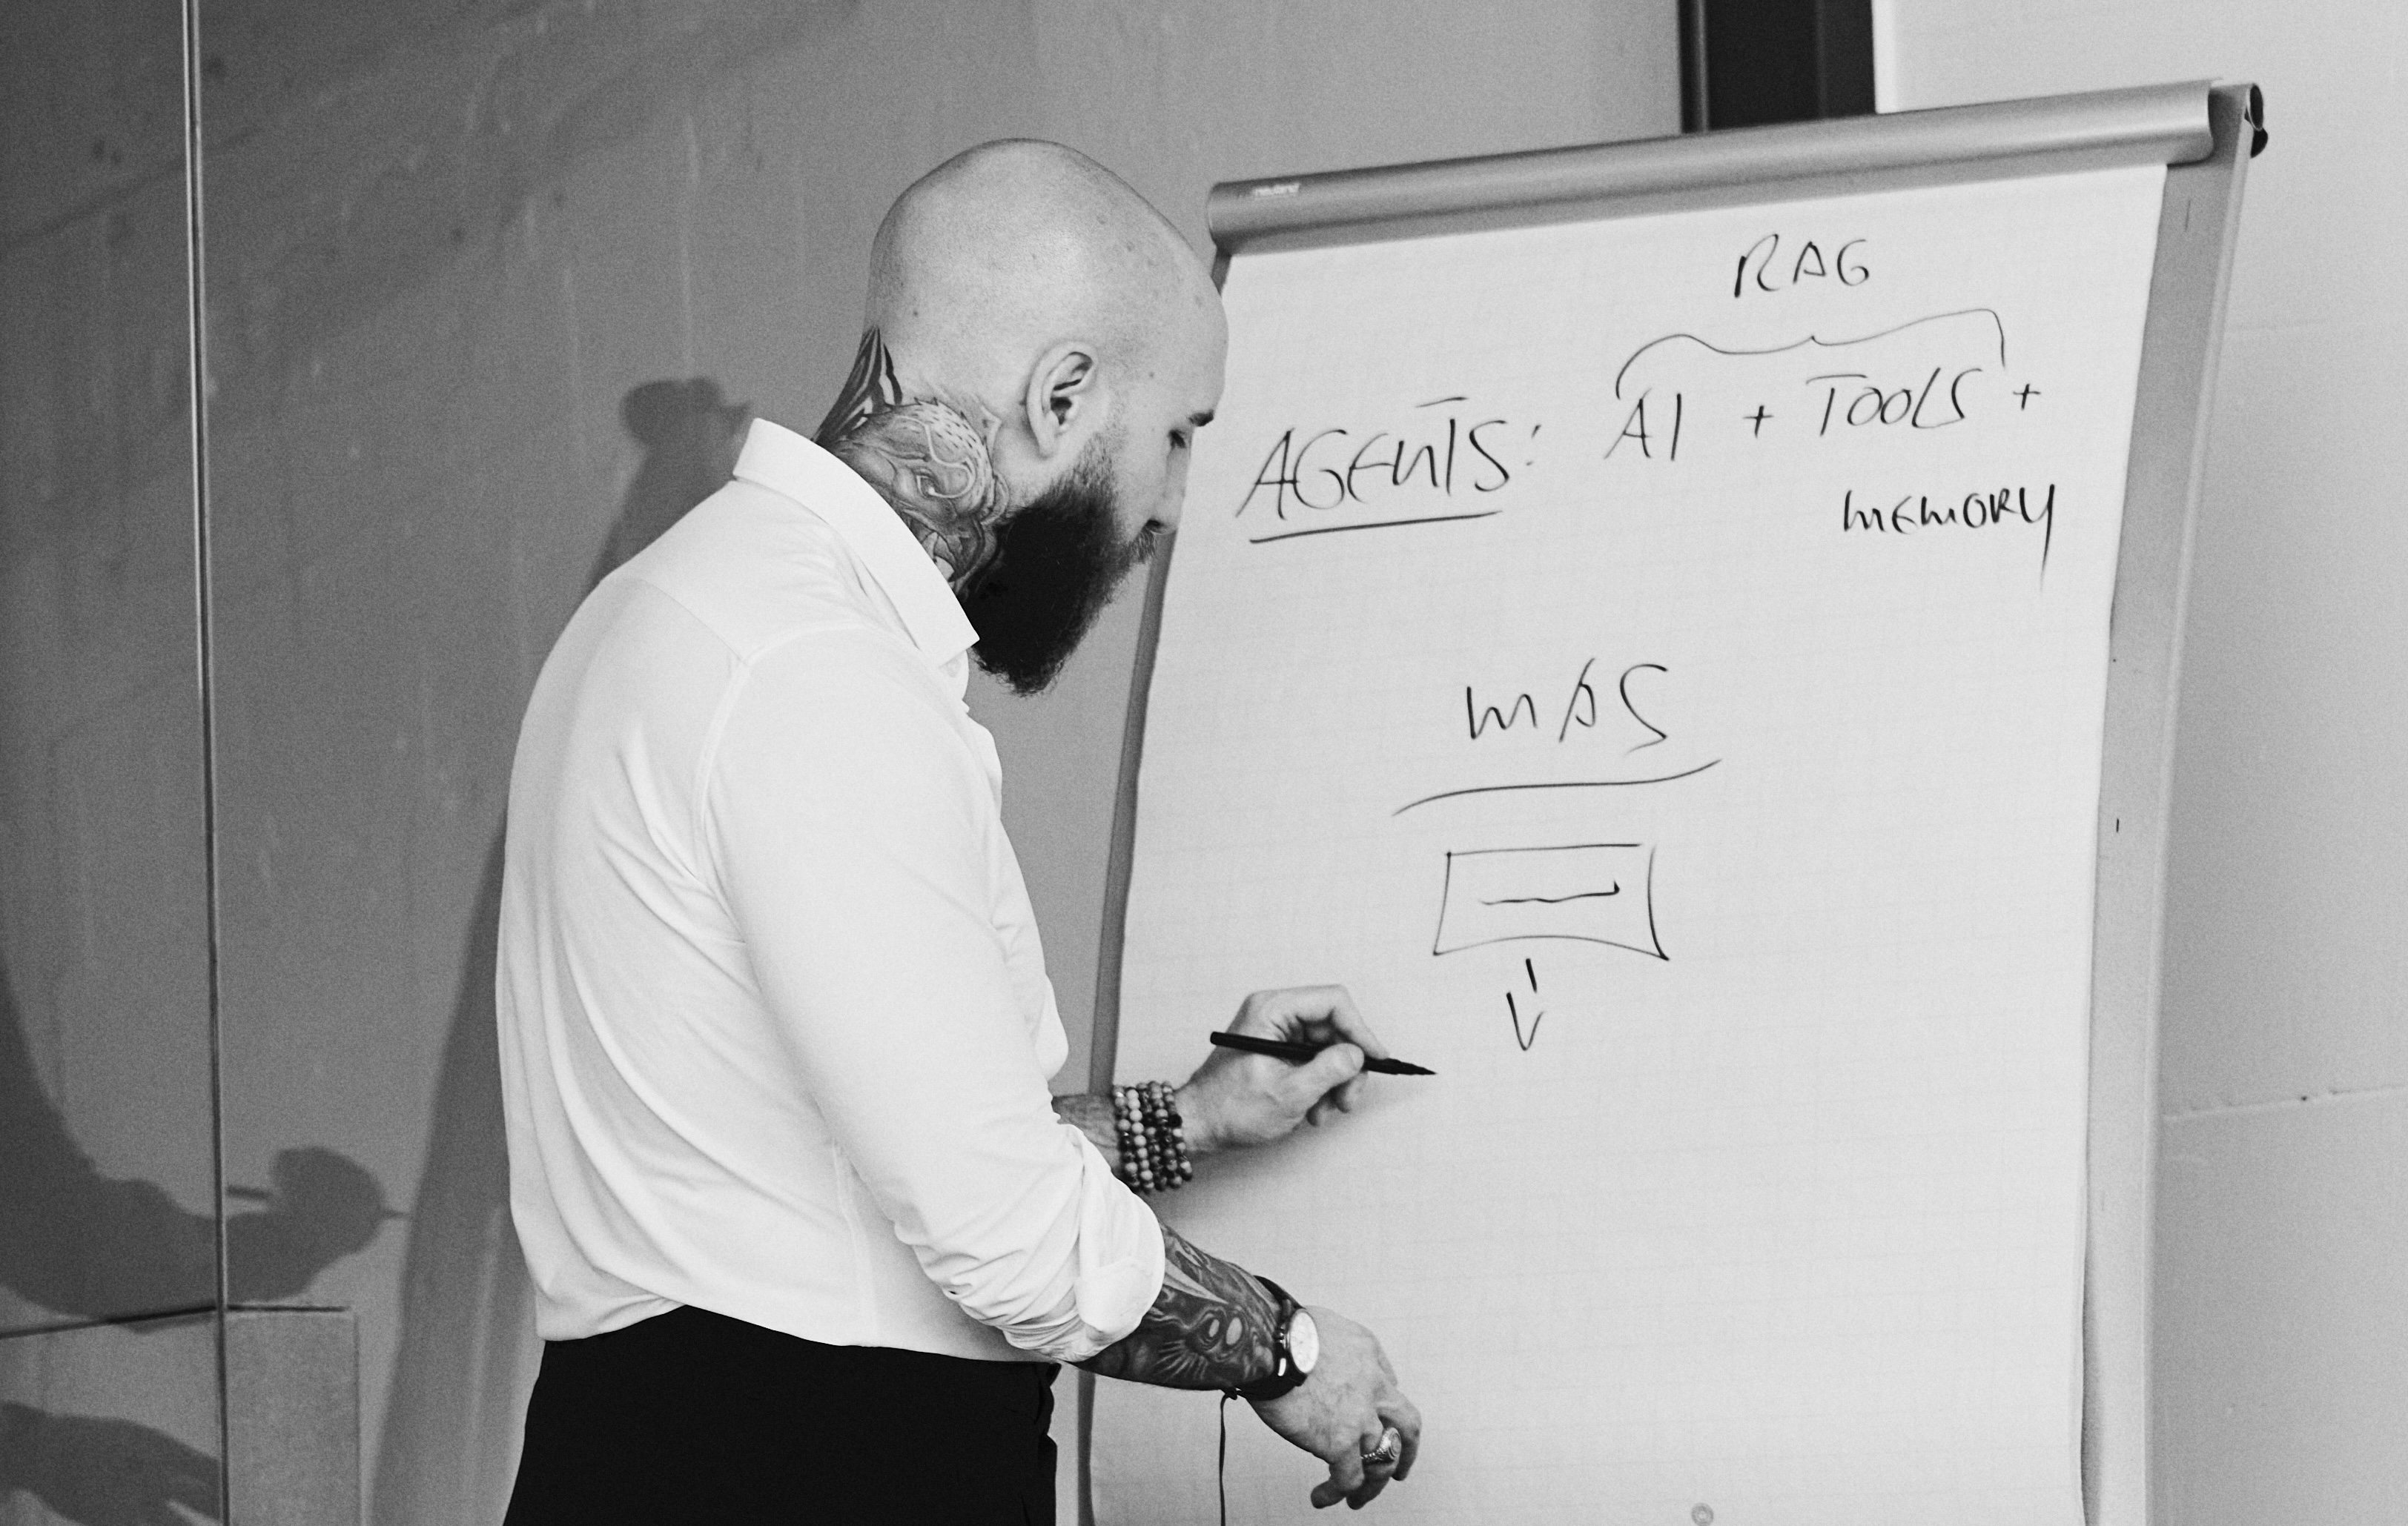 RAG
AGENTS: AI + TOOLS +
MEMORY
MAS